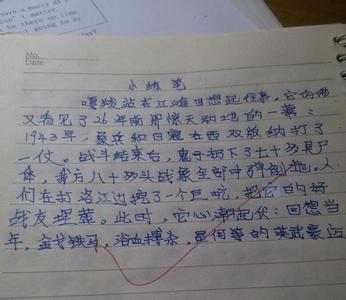 have a party at
on't matter.
be there on time.
going to my
No.
Date
小练笔
嘎羧站在江滩回想起往事，它仿佛
又看见了26年前那惊天动地的一幕：
1943年，象兵和日寇在西双版纳打了
一仗。战斗结束后，鬼子扔下了七十多具尸
体，我方八十多头战象全部中弹倒地，人
们在打洛江边挖了一个巨坑，把它的好
战友埋葬。此时，它心潮起伏：回想当
年，金戈铁马，浴血搏杀，是何等的英武豪迈